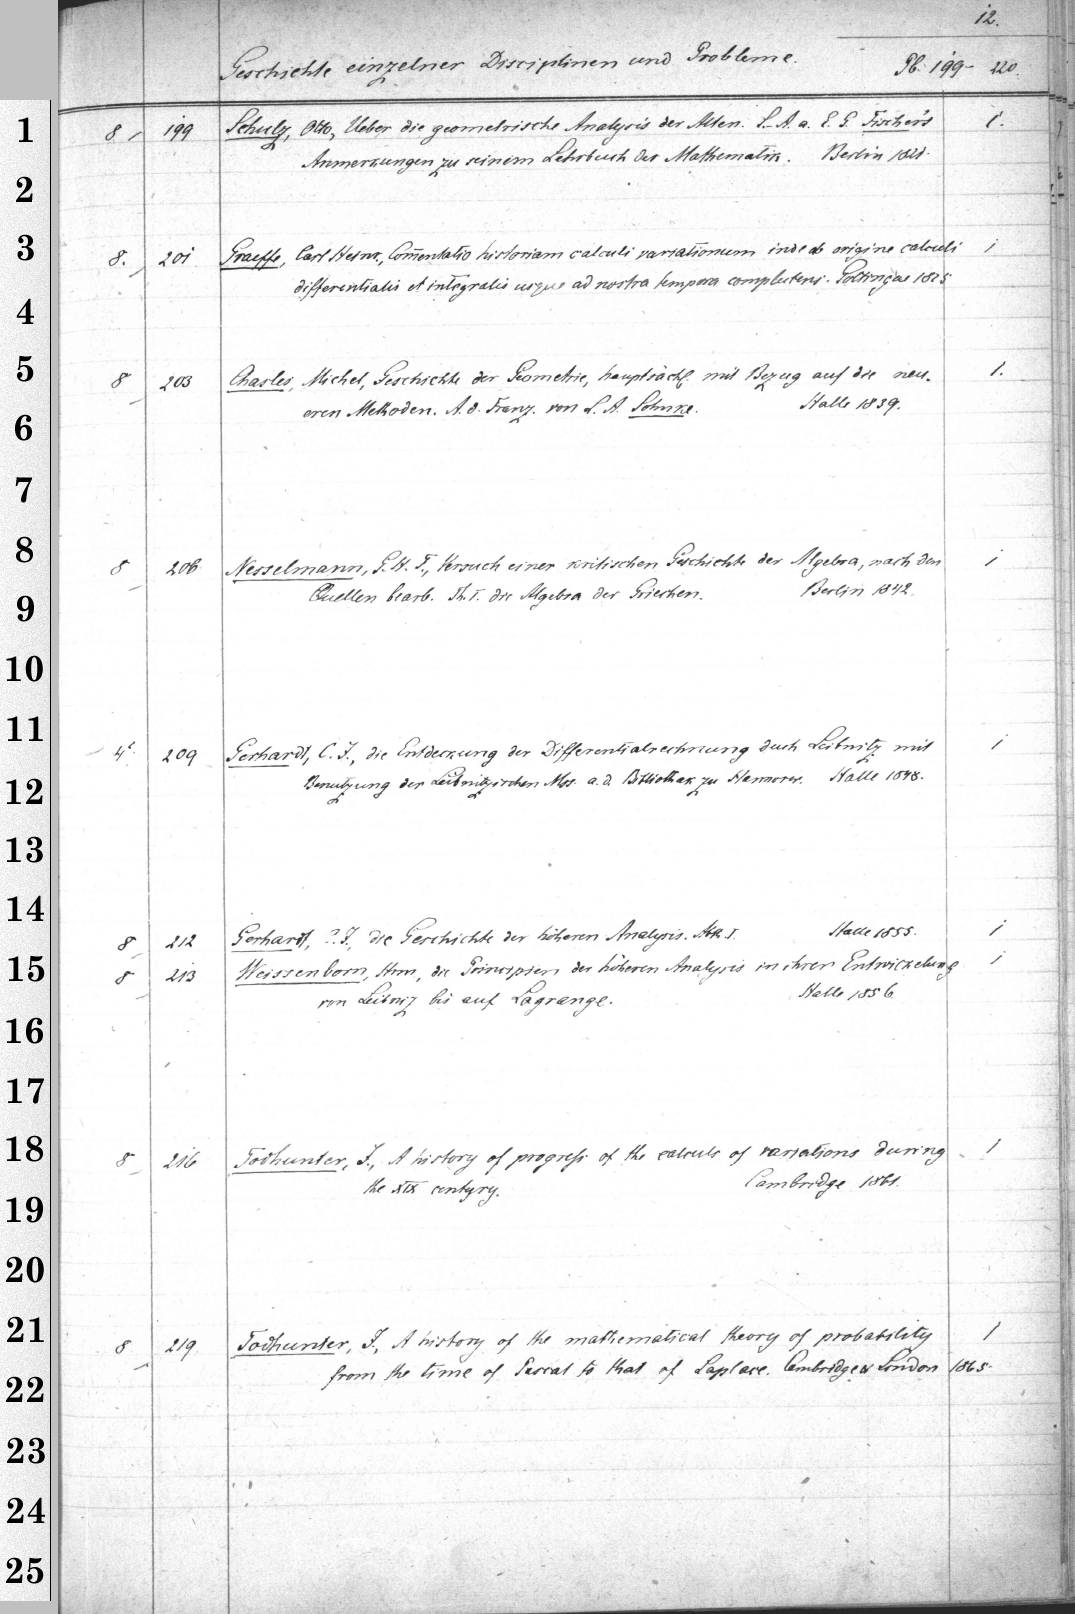 12.
Geschichte einzelner Disciplinen und Probleme. Pb. 199- 220.
1 8, 199 Schulz, Otto, Ueber die geometrische Analysis der Alten. S. A. a. E. G. Fischer's 1.
Anmerkungen zu seinem Lehrbuch der Mathematik. Berlin
2
3 8. 201 Graeffe, Carl Heinr., Com̄entatio historiam calculi variationum inde ab origine calculi 1
differentialis et integralis usque ad nostra tempora complectens. Gottingae 1825
4
5 8 203 Chasles, Michel, Geschichte der Geometrie, hauptsächl. mit Bezug auf die neu- 1.
eren Methoden. A. d. Franz. von L. A. Sohncke. Halle 1839.
6
7
8 8 206 Nesselmann, G. H. F., Versuch einer kritischen Geschichte der Algebra, nach den 1
Quellen bearb. Th. I. die Algebra der Griechen. Berlin 1842.
9
10
11 4t. 209 Gerhardt, C. J., die Entdeckung der Differentialrechnung duch Leibnitz mit 1
12 Benutzung der Leibnitzischen Mss. a. d. Bibliothek zu Hannover. Halle 1848.
13
14
8 212 Gerhardt, C. J., die Geschichte der höheren Analysis. Abth. I. Halle 1855. 1
15 8 213 Weissenborn, Hrm, die Principien der höheren Analysis in ihrer Entwickelung 1
von Leibniz bis auf Lagrange. Halle 1856
16
17
18 8 216 Todhunter, J., A history of progress of the calculs of variations during 1
the XIX centyry. Cambridge 1861.
19
20
21 8 219 Todhunter, J., A history of the mathematical theory of probability 1
from the time of Pascal to that of Laplace. Cambridge & London 1865.
22
23
24
25